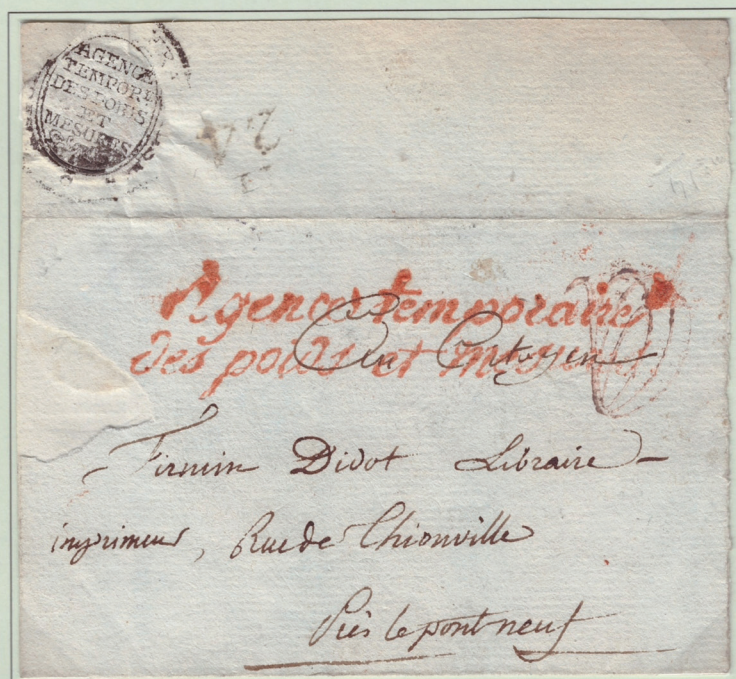 AGENCE
TEMPORE
DES POIDS
ET
MESURES
Agence temporaire
des poids et mesures
Au Citoyen
Firmin Didot Libraire
imprimeur, Rue de Thionville
Près le pont neuf